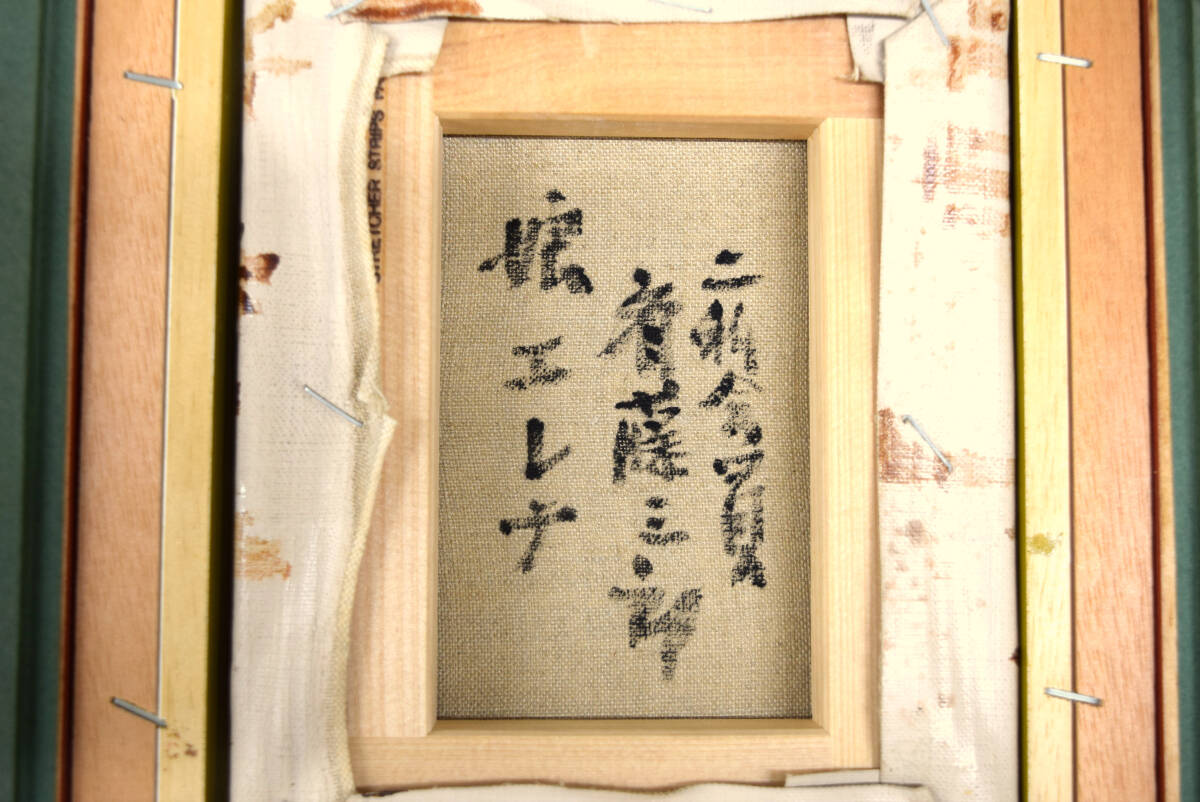 二科会員
斎藤三郎
娘エレナ
STRETCHER STRIPS